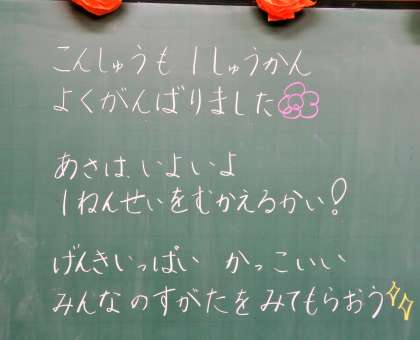 こんしゅうも 1しゅうかん
よくがんばりました
あさは、いよいよ
1ねんせいをむかえるかい!
げんきいっぱい かっこいい
みんなのすがたをみてもらおう